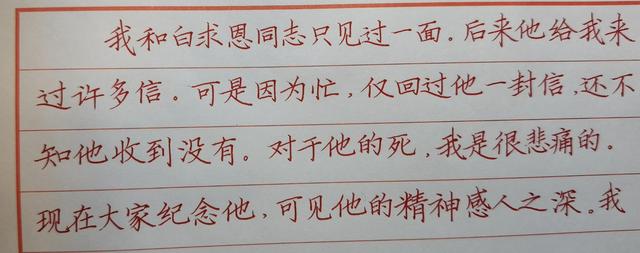 我和白求恩同志只见过一面。后来他给我来
过许多信。可是因为忙，仅回过他一封信，还不
知他收到没有。对于他的死，我是很悲痛的。
现在大家纪念他，可见他的精神感人之深。我